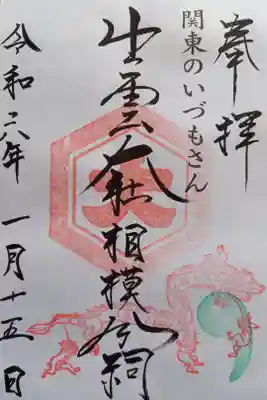 奉拝
関東のいづもさん
出雲大社相模分祠
令和六年一月十五日